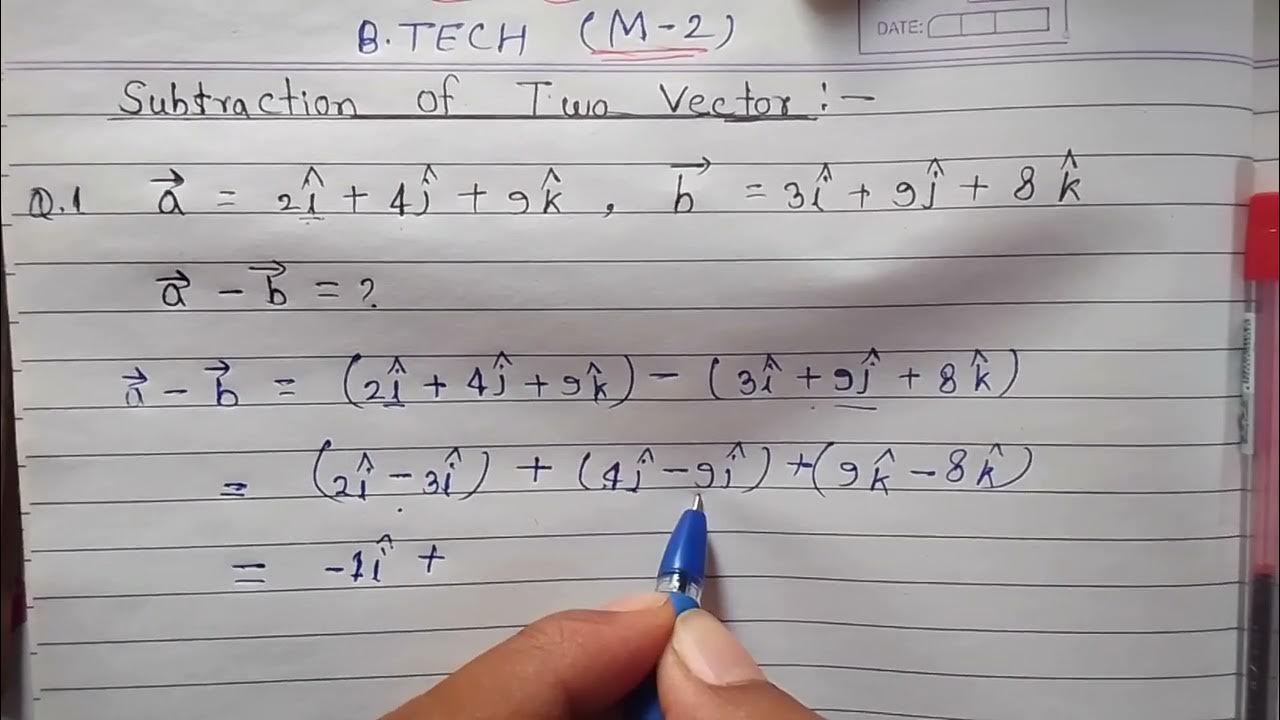 B.TECH (M-2)
DATE:
Subtraction of Two Vector :-
Q.1 a⃗ = 2î + 4ĵ + 9k̂ , b⃗ = 3î + 9ĵ + 8k̂
a⃗ - b⃗ = ?
a⃗ - b⃗ = (2î + 4ĵ + 9k̂) - (3î + 9ĵ + 8k̂)
= (2î - 3î) + (4ĵ - 9ĵ) + (9k̂ - 8k̂)
= -1î +